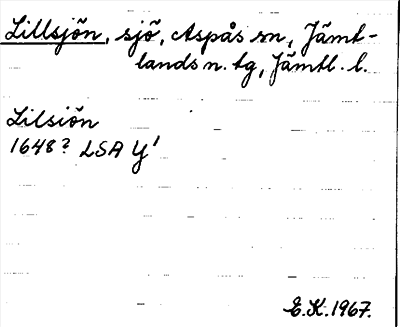 Lillsjön, sjö, Aspås sn, Jämt-
lands n. tg, Jämtl. l.
Lilsiön
1648? LSA Y'
E.K. 1967.